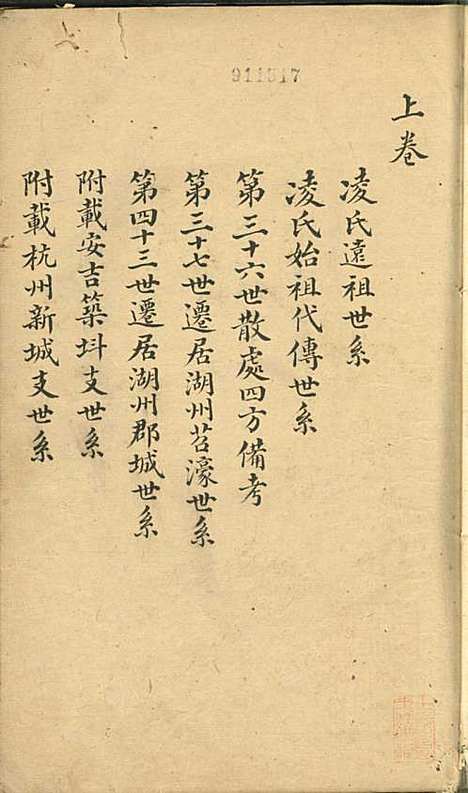 911517
上卷
凌氏遠祖世系
凌氏始祖代傳世系
第三十六世散處四方備考
第三十七世遷居湖州苕濠世系
第四十三世遷居湖州郡城世系
附載安吉築㘰支世系
附載杭州新城支世系